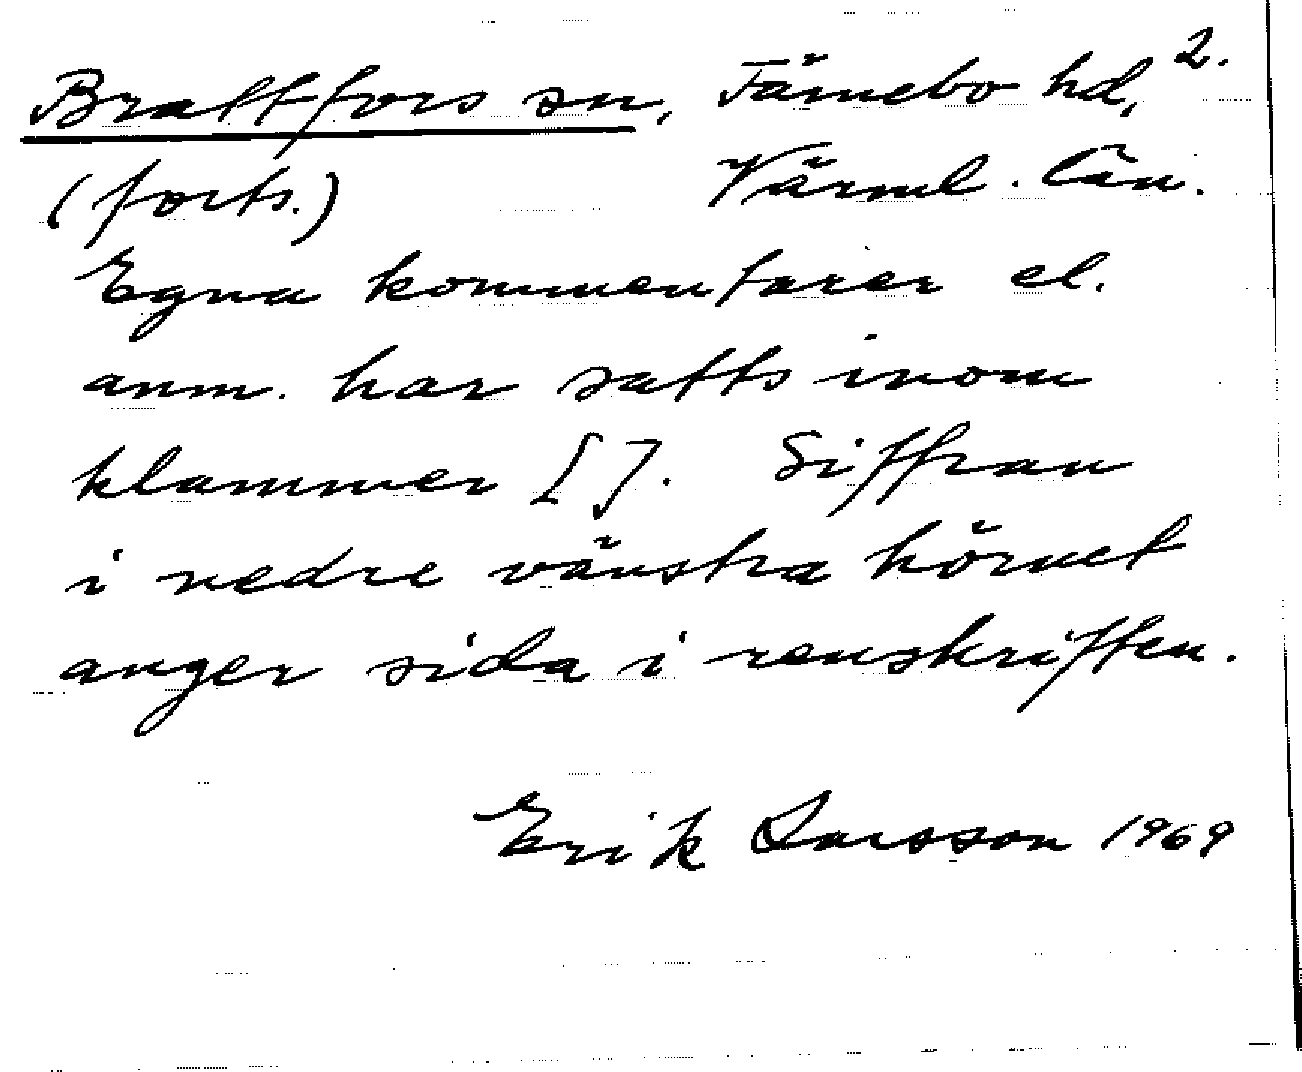 Brattfors sn, Färnebo hd, 2.
(forts.) Värml. län.
Egna kommentarer el.
anm. har satts inom
klammer [ ]. Siffran
i nedre vänstra hörnet
anger sida i renskriften.
Erik Larsson 1969